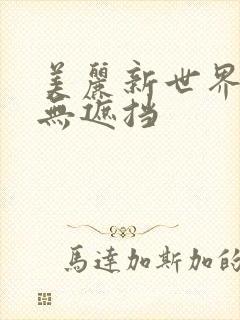 美麗新世界
無遮挡
馬達加斯加的